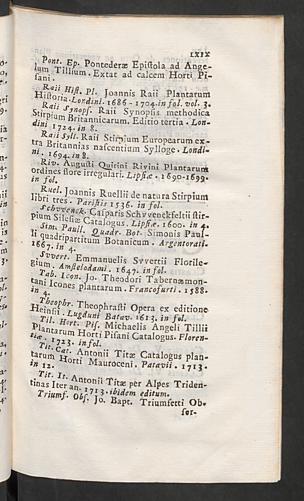 LXIX
Pont. Ep. Pontederæ Epistola ad Ange-
lum Tillium. Extat ad calcem Horti Pi-
sani.
Raii Hist. Pl. Joannis Raii Plantarum
Historia. Londini. 1686 - 1704. in fol. vol. 3.
Raii Synops. Raii Synopsis methodica
Stirpium Britannicarum. Editio tertia. Lon-
dini 1724. in 8.
Raii Syll. Raii Stirpium Europearum ex-
tra Britannias nascentium Sylloge. Londi-
ni. 1694. in 8.
Riv. Augusti Quirini Rivini Plantarum
ordines flore irregulari. Lipsiæ. 1690-1699.
in fol.
Ruel. Joannis Ruellii de natura Stirpium
libri tres. Parisiis 1536. in fol.
Schvvenck. Casparis Schvvenckfeltii stir-
pium Silesiæ Catalogus. Lipsiæ. 1600. in 4.
Sim. Paull. Quadr. Bot. Simonis Paul-
li quadripartitum Botanicum. Argentorati.
1667. in 4.
Svvert. Emmanuelis Svvertii Florile-
gium. Amstelodami. 1647. in fol.
Tab. Icon. Jo. Theodori Tabernæmon-
tani Icones plantarum. Francofurti. 1588.
in 4.
Theophr. Theophrasti Opera ex editione
Heinsii. Lugduni Batav. 1613. in fol.
Til. Hort. Pis. Michaelis Angeli Tillii
Plantarum Horti Pisani Catalogus. Floren-
tiæ. 1723. in fol.
Tit. Cat. Antonii Titæ Catalogus plan-
tarum Horti Mauroceni. Patavii. 1713.
in 12.
Tit. It. Antonii Titæ per Alpes Triden-
tinas Iter an. 1713. ibidem editum.
Triumf. Obs. Jo. Bapt. Triumfetti Ob-
ser-